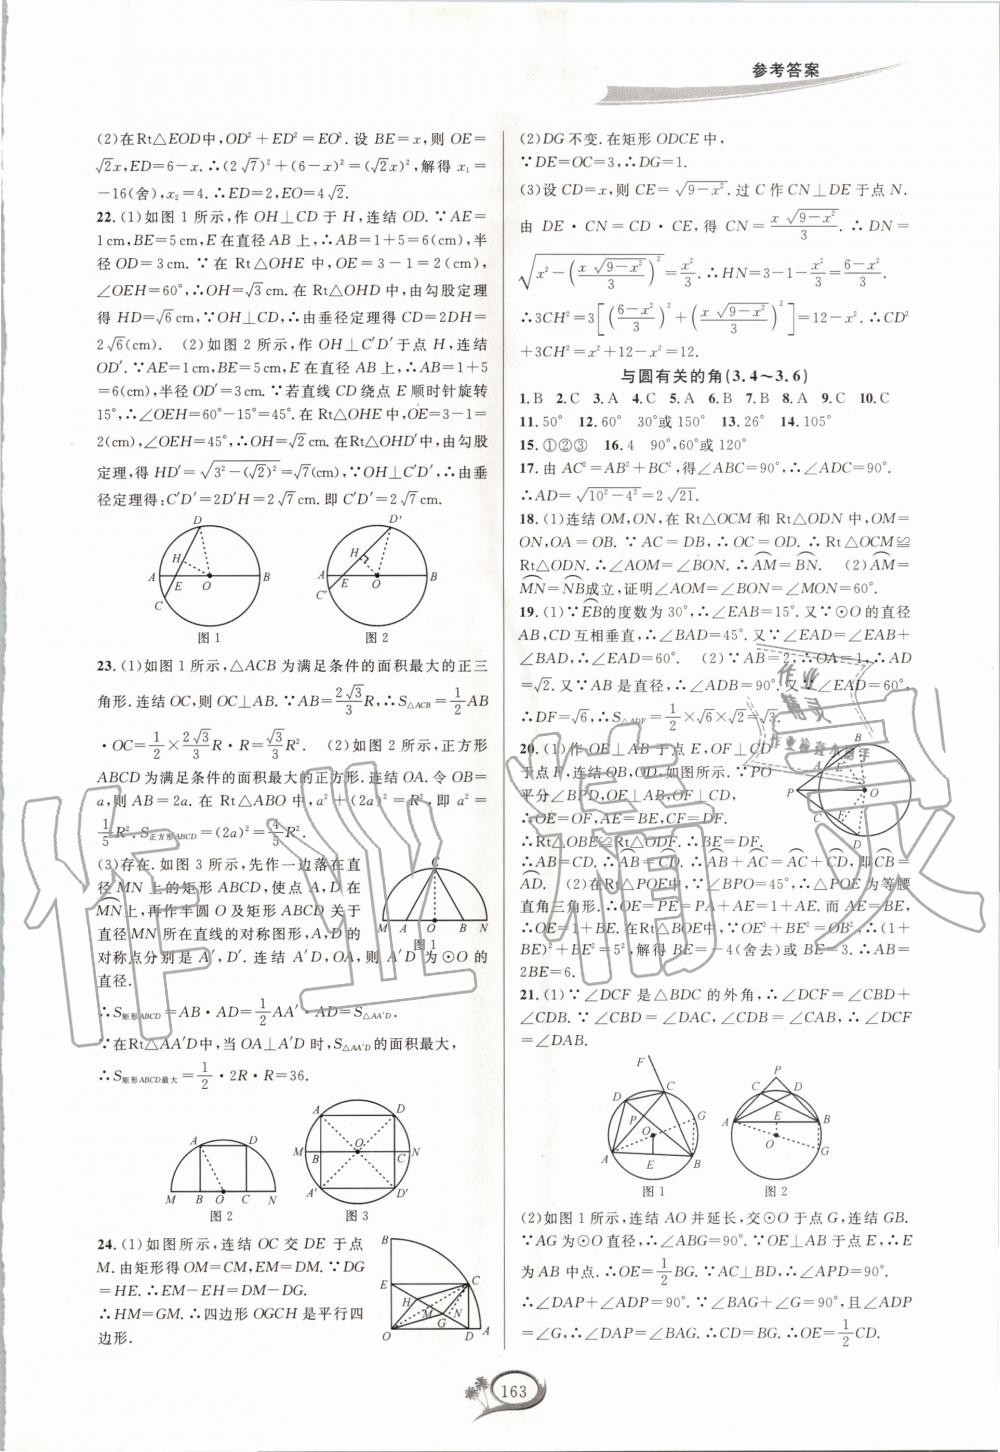 参考答案
(2)在Rt△EOD中,OD²+ED²=EO². 设 BE=x,则 OE=
√2x,ED=6-x. ∴(2√7)²+(6-x)²=(√2x)²,解得 x₁=
-16(舍),x₂=4. ∴ED=2,EO=4√2.
22. (1)如图 1 所示,作 OH⊥CD 于 H,连结 OD. ∵AE=
1 cm,BE=5 cm,E 在直径 AB 上,∴AB=1+5=6(cm),半
径 OD=3 cm. ∵在 Rt△OHE 中,OE=3-1=2(cm),
∠OEH=60°,∴OH=√3 cm. ∴在 Rt△OHD 中,由勾股定理
得 HD=√6(cm). ∵OH⊥CD,∴由垂径定理得 CD=2DH=
2√6(cm). (2)如图 2 所示,作 OH⊥C′D′于点 H,连结
OD′. ∵AE=1 cm,BE=5 cm,E 在直径 AB 上,∴AB=1+5
=6(cm),半径 OD′=3 cm. ∵若直线 CD 绕点 E 顺时针旋转
15°,∴∠OEH=60°-15°=45°. 在 Rt△OHE 中,OE=3-1=
2(cm),∠OEH=45°,∴OH=√2 cm. ∴在 Rt△OHD′中,由勾股
定理,得 HD′=√(3²-(√2)²)=√7(cm). ∵OH⊥C′D′,∴由垂
径定理得:C′D′=2D′H=2√7 cm. 即 C′D′=2√7 cm.
D H A E O B C
图 1
D′ H A E O B C′
图 2
23. (1)如图 1 所示,△ACB 为满足条件的面积最大的正三
角形. 连结 OC,则 OC⊥AB. ∵AB=2√3/3R,∴S△ACB=1/2AB
·OC=1/2×2√3/3R·R=√3/3R². (2)如图 2 所示,正方形
ABCD 为满足条件的面积最大的正方形. 连结 OA. 令 OB=
a,则 AB=2a. 在 Rt△ABO 中,a²+(2a)²=R². 即 a²=
1/5R². S正方形ABCD=(2a)²=4/5R².
(3)存在. 如图 3 所示,先作一边落在直
径 MN 上的矩形 ABCD,使点 A,D 在
MN上,再作半圆 O 及矩形 ABCD 关于
直径 MN 所在直线的对称图形,A,D 的
对称点分别是 A′,D′. 连结 A′D,OD,则 A′D 为⊙O 的
直径.
C M A O B N
图 1
∴S矩形ABCD=AB·AD=1/2AA′·AD=S△AA′D.
∵在Rt△AA′D中,当 OA⊥A′D 时,S△AA′D的面积最大,
∴S矩形ABCD最大=1/2·2R·R=36.
A D M B O C N
图 2
A D M B O C N A′ D′
图 3
24. (1)如图所示,连结 OC 交 DE 于点
M. 由矩形得 OM=CM,EM=DM. ∵DG
=HE. ∴EM-EH=DM-DG.
∴HM=GM. ∴四边形 OGCH 是平行四
边形.
B E C H M N G O D A
(2)DG 不变. 在矩形 ODCE 中,
∵DE=OC=3,∴DG=1.
(3)设 CD=x,则 CE=√(9-x²). 过 C 作 CN⊥DE 于点 N.
由 DE·CN=CD·CE,得 CN=x√(9-x²)/3. ∴DN=
√(x²-(x√(9-x²)/3)²)=x²/3. ∴HN=3-1-x²/3=(6-x²)/3.
∴3CH²=3[((6-x²)/3)²+(x√(9-x²)/3)²]=12-x². ∴CD²
+3CH²=x²+12-x²=12.
与圆有关的角(3.4～3.6)
1. B 2. C 3. A 4. C 5. A 6. B 7. B 8. A 9. C 10. C
11. 50° 12. 60° 30°或 150° 13. 26° 14. 105°
15. ①②③ 16. 4 90°,60°或 120°
17. 由 AC²=AB²+BC²,得∠ABC=90°,∴∠ADC=90°.
∴AD=√(10²-4²)=2√21.
18. (1)连结 OM,ON,在 Rt△OCM 和 Rt△ODN 中,OM=
ON,OA=OB. ∵AC=DB,∴OC=OD. ∴Rt△OCM≌
Rt△ODN. ∴∠AOM=∠BON. ∴AM=BN. (2)AM=
MN=NB成立,证明∠AOM=∠BON=∠MON=60°.
19. (1)∵EB的度数为 30°,∴∠EAB=15°. 又∵⊙O 的直径
AB,CD 互相垂直,∴∠BAD=45°. 又∵∠EAD=∠EAB+
∠BAD,∴∠EAD=60°. (2)∵AB=2,∴OA=1,∴AD
=√2. 又∵AB 是直径,∴∠ADB=90°. 又∵∠EAD=60°,
∴DF=√6,∴S△ADF=1/2×√6×√2=√3.
20. (1)作 OE⊥AB 于点 E,OF⊥CD
于点F,连结 OB,OD,如图所示. ∵PO
平分∠BPD,OE⊥AB,OF⊥CD,
∴OE=OF,AE=BE,CF=DF.
∴Rt△OBE≌Rt△ODF. ∴BE=DF.
∴AB=CD. ∴AB=CD. ∴AB+AC=AC+CD,即CB=
AD. (2)在Rt△POE中,∵∠BPO=45°,∴△POE为等腰
直角三角形. ∴OE=PE=PA+AE=1+AE. 而 AE=BE,
∴OE=1+BE. 在Rt△BOE中,∵OE²+BE²=OB²,∴(1+
BE)²+BE²=5²,解得 BE=-4(舍去)或 BE=3. ∴AB=
2BE=6.
B A E P O C F D
21. (1)∵∠DCF 是△BDC 的外角,∴∠DCF=∠CBD+
∠CDB. ∵∠CBD=∠CAD,∠CDB=∠CAB,∴∠DCF
=∠DAB.
F C D P G O A E B
图 1
P C D A E B O G
图 2
(2)如图 1 所示,连结 AO 并延长,交⊙O 于点 G,连结 GB.
∵AG 为⊙O 直径,∴∠ABG=90°. ∵OE⊥AB 于点 E,∴E
为 AB 中点. ∴OE=1/2BG. ∵AC⊥BD,∴∠APD=90°.
∴∠DAP+∠ADP=90°. ∵∠BAG+∠G=90°,且∠ADP
=∠G,∴∠DAP=∠BAG. ∴CD=BG. ∴OE=1/2CD.
163
作业精灵
作业精灵
作业检查小助手